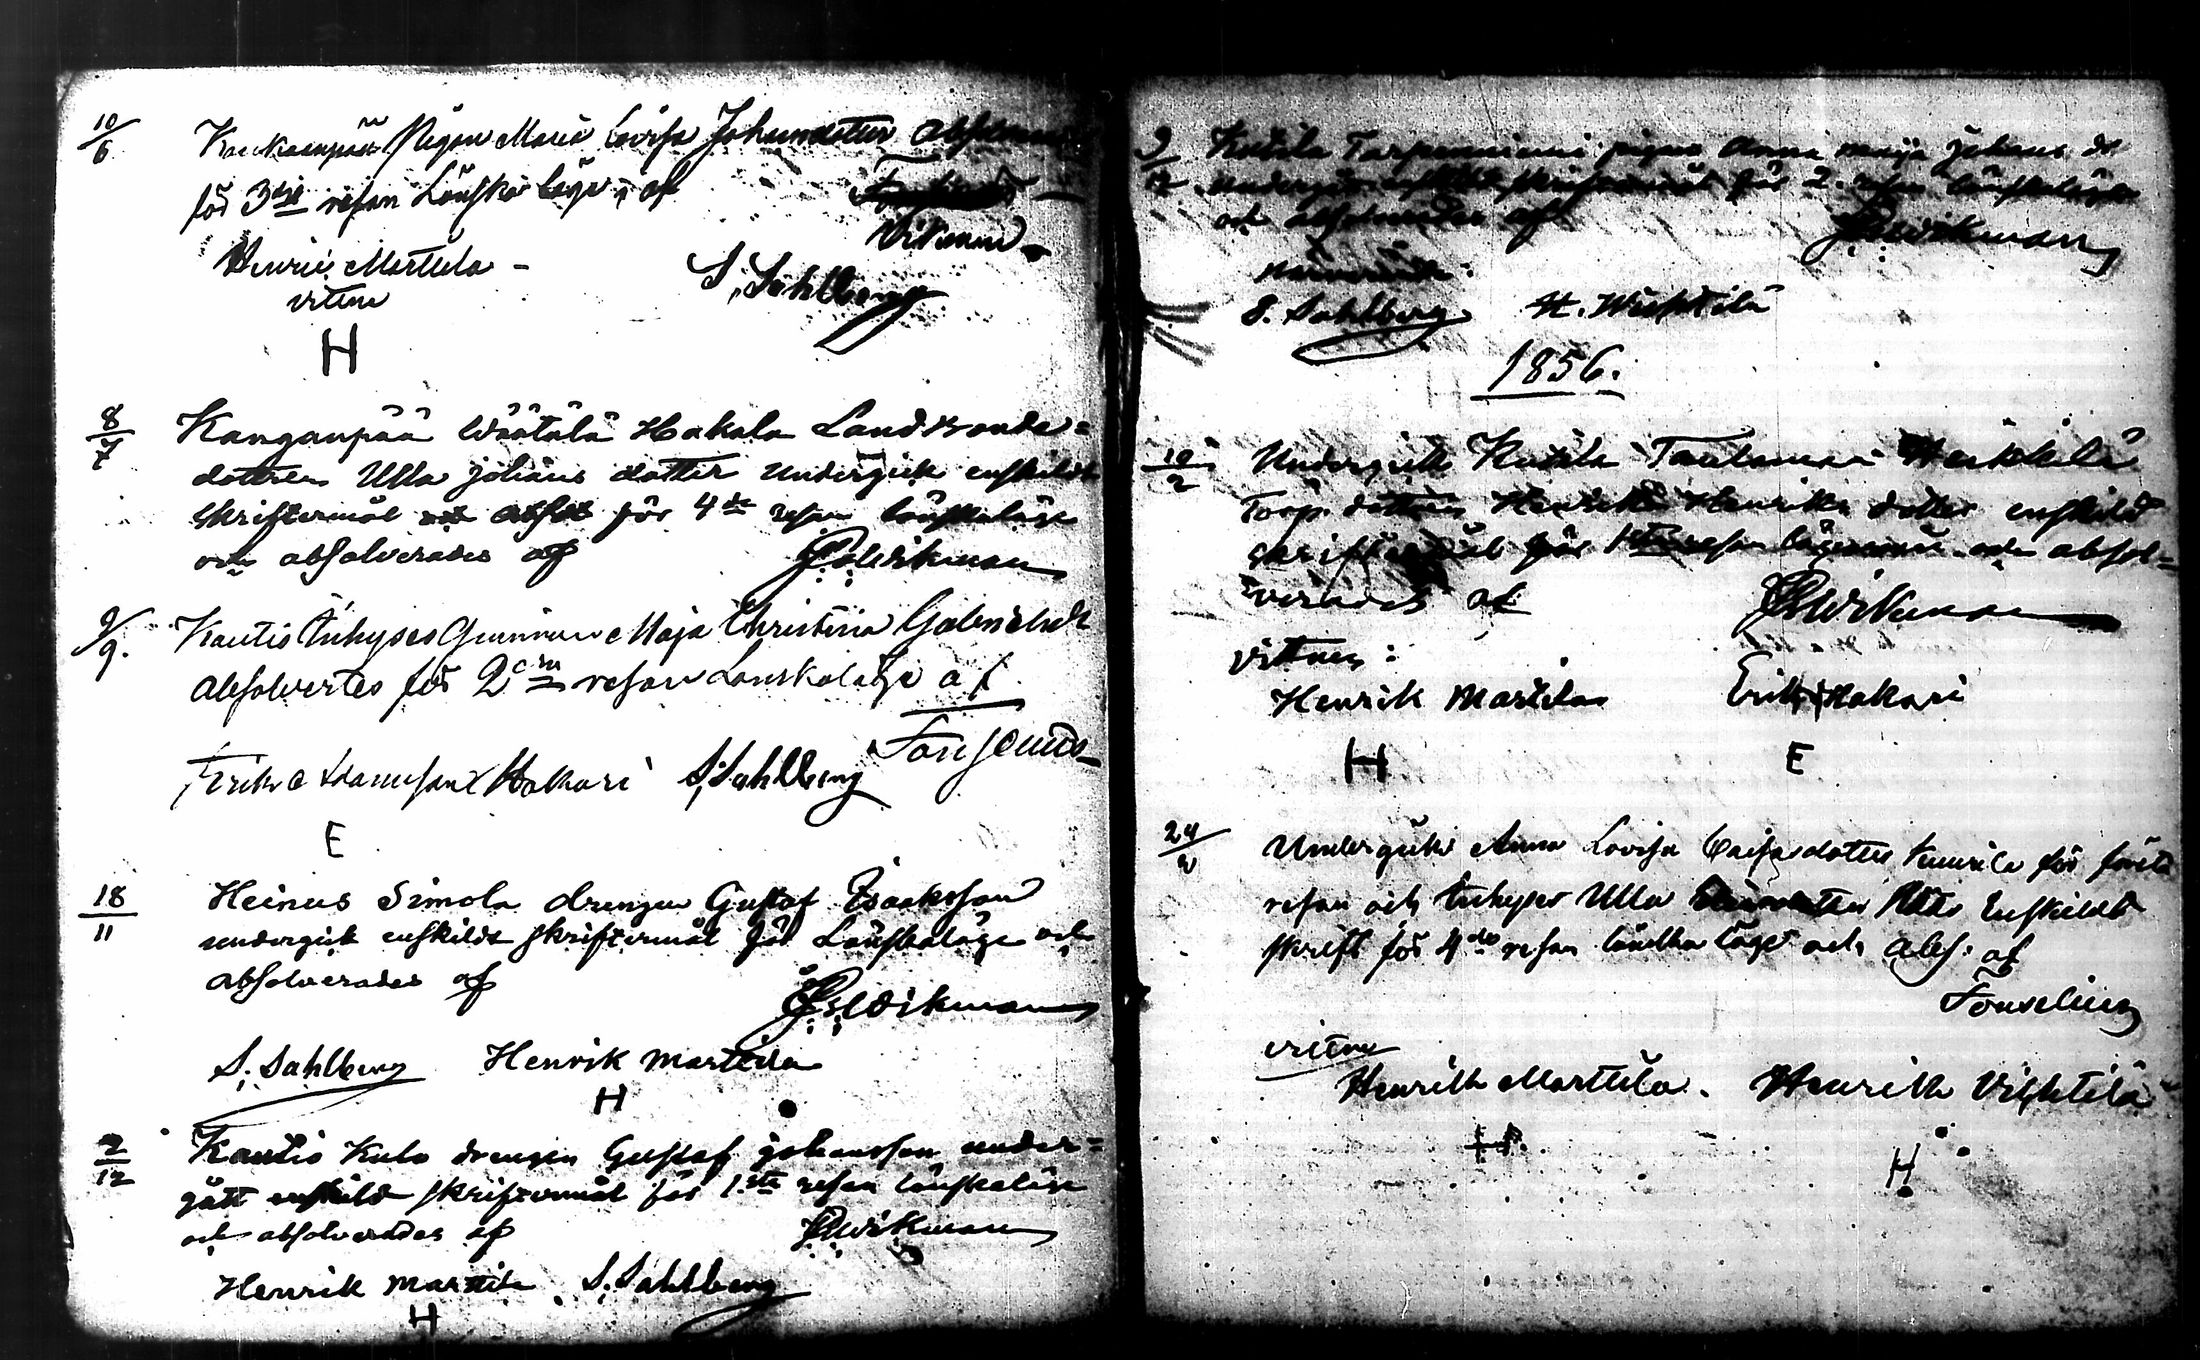 10/6 Kankaanpää Pigan Maria Lovisa Johansdotter absolverad
för 3dje resan Lönska läge, af
Vikman
Henric Marttila S. Sahlberg
vittne
H
8/7 Kanganpää Wäätälä Hakala Landbonde=
dottren Ulla Johans dotter undergick enskildt
skriftermål för 4de resan lönskaläge
och absolverades af Wikman
9/9. Kautio Inhyses Maja Christina Gabrielsd
absolvertes för 2dra resan Lönskaläge af
Fonselius
Erik Hakari S. Sahlberg
E
18/11 Heinus Simola drengen Gustaf Isaaksson
undergick enskildt skriftermål för Lönskaläge och
absolverades af Wikman
S. Sahlberg Henrik Martila
H
2/12 Kautio Kulo drengen Gustaf Johansson under=
gått enskild skriftermål för 1.sta resan lönskaläge
och absolverades af Wikman
Henrik Martila S. Sahlberg
H
9/12 pigan Anna Maija Johans dr
undergått enskildt skriftermål för 2. resan lönskaläge
och absolverades af Wikman
närvarande:
S. Sahlberg H. Wichtilä
1856.
10/2 Undergick Heikkilä
Torp. dottren Henrika Henriks dotter enskild
skriftermål för 1sta resan lägersmål och absol=
verades af Wikman
vittnen:
Henrik Martila Erik Hakari
H E
24/2 Undergick Anna Lovisa Caisadotter för första
resan och Inhyses Ulla Enskildt
skrift för 4de resan lönska läge och abs. af
Fonselius
vittne
Henrik Marttila. Henrik Vichtilä
H. H